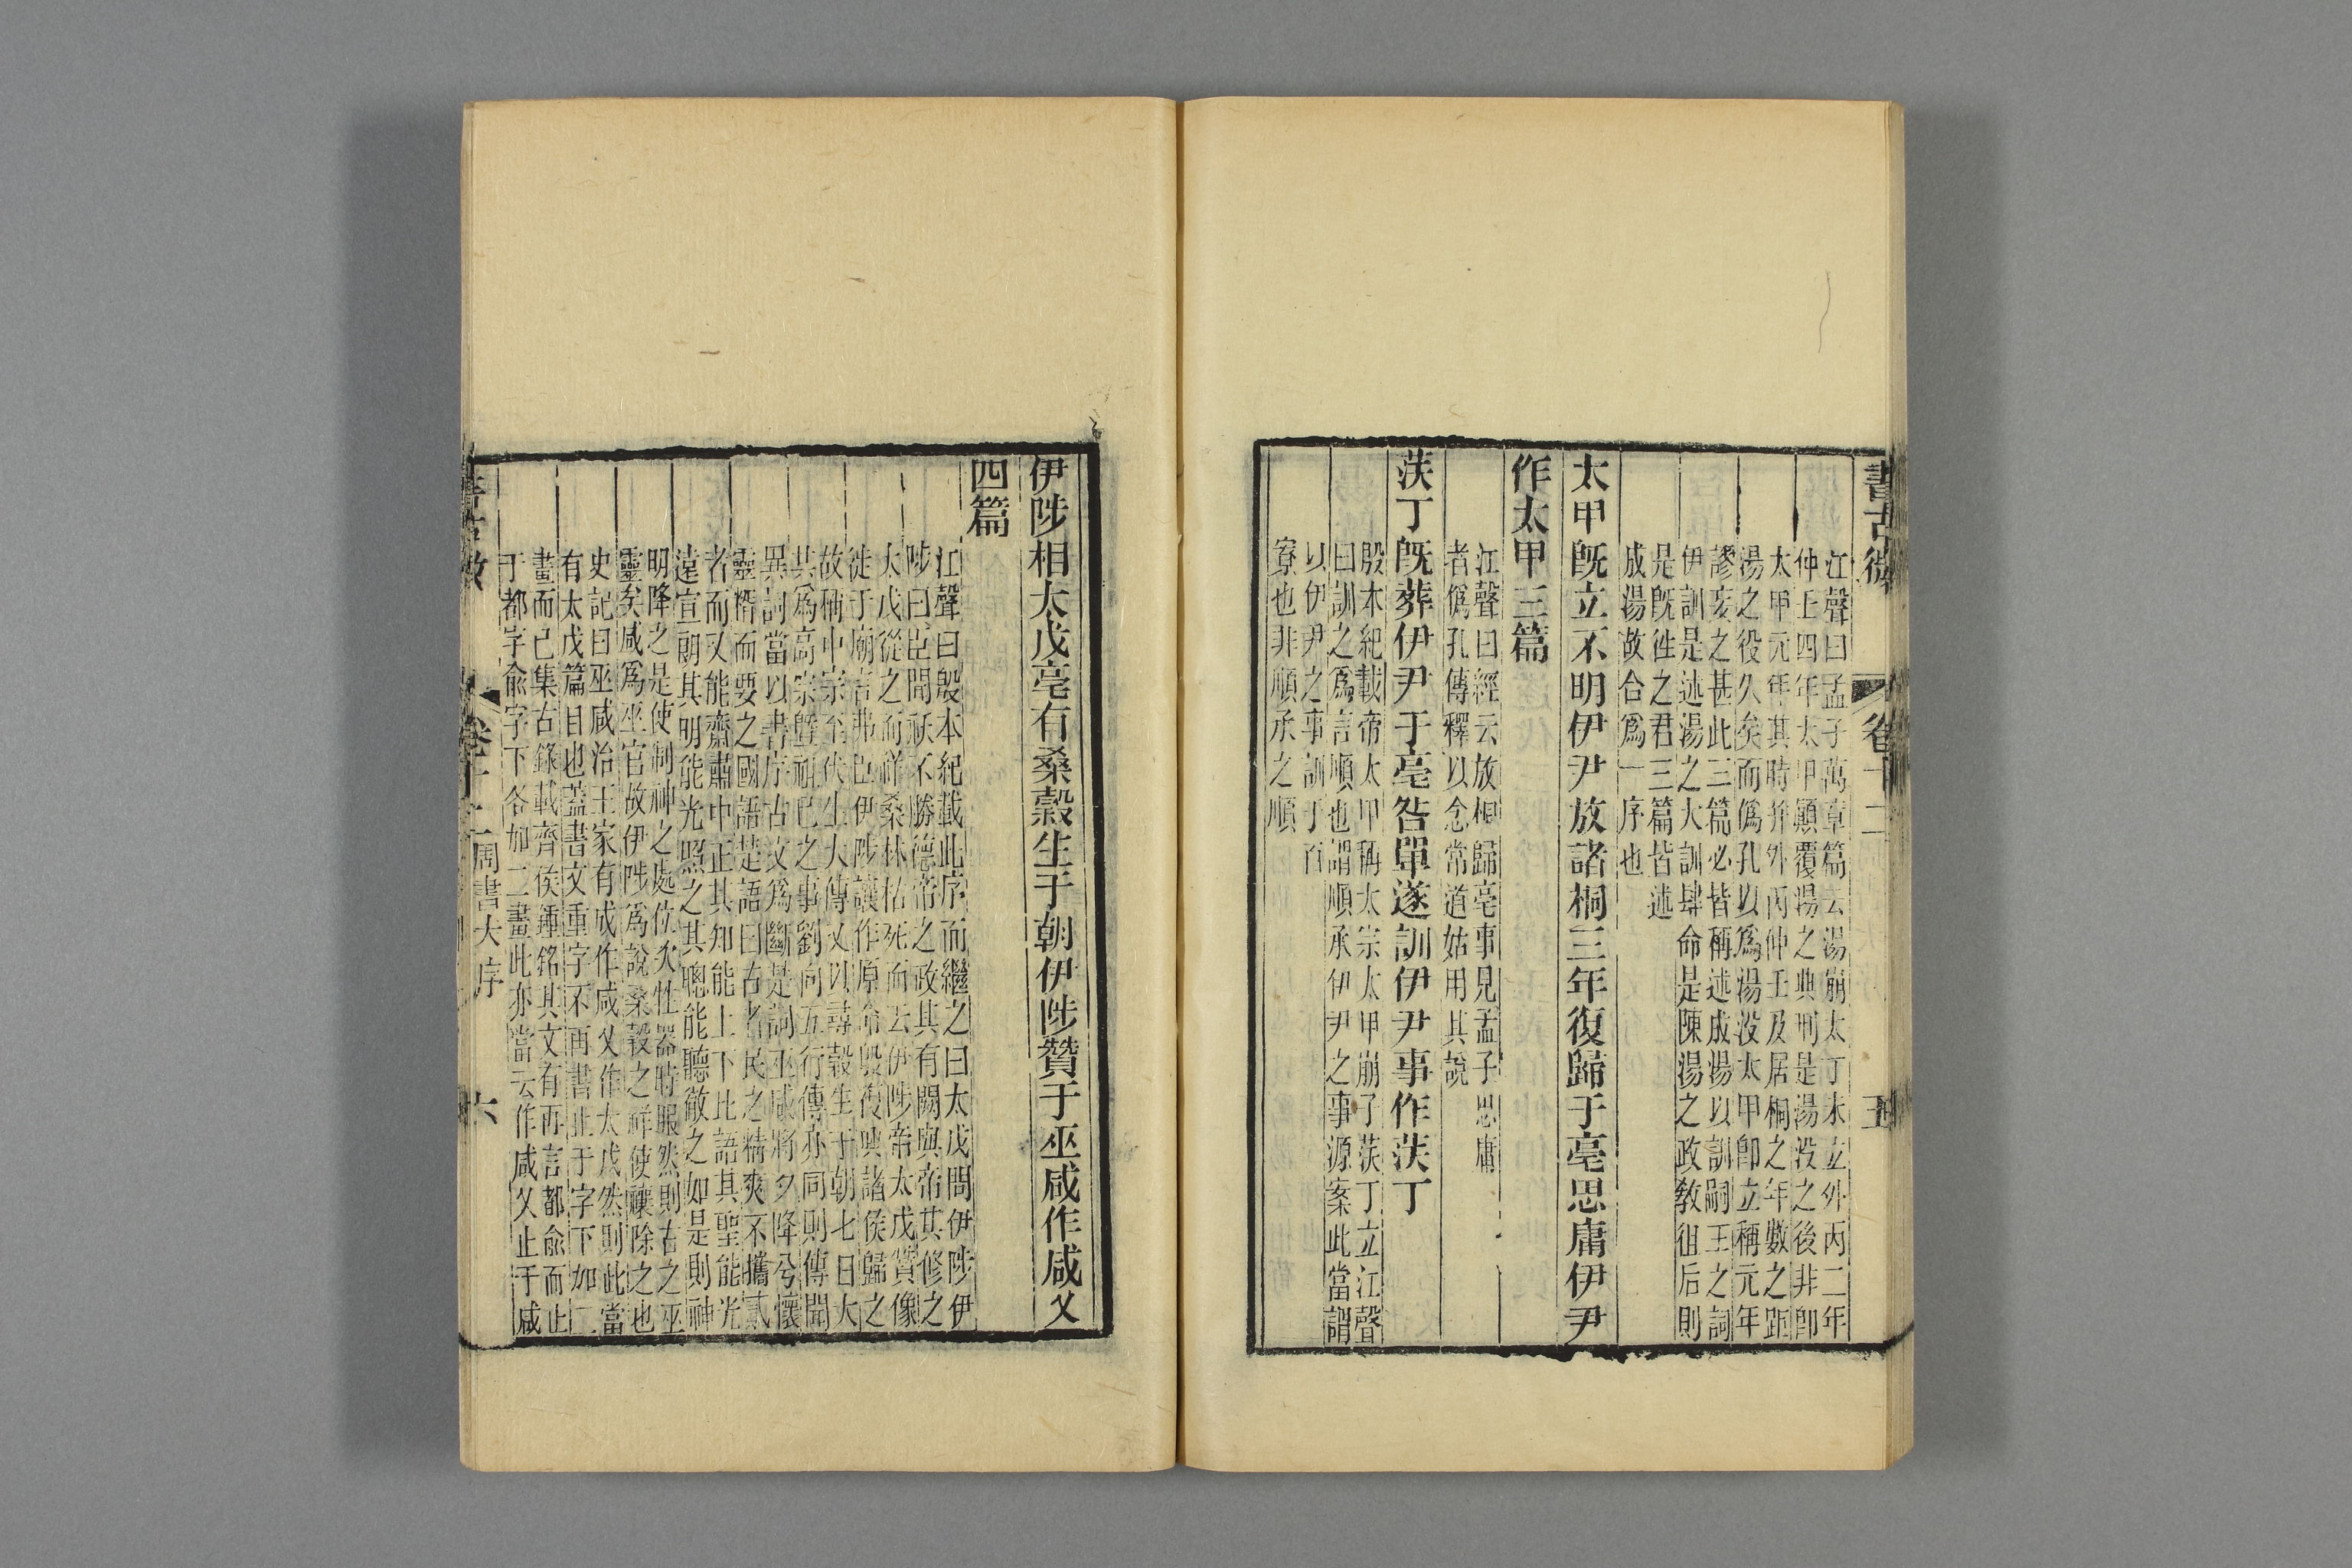 書古微 卷十二 五
江聲曰孟子萬章篇云湯崩太丁未立外丙二年
仲壬四年太甲顚覆湯之典刑是湯没之後非卽
太甲元年其時幷外丙仲壬及居桐之年數之距
湯之役久矣而僞孔以爲湯没太甲卽立稱元年
謬妄之甚此三篇必皆稱述成湯以訓嗣王之詞
伊訓是述湯之大訓肆命是陳湯之政敎徂后則
是旣徃之君三篇皆述
成湯故合爲一序也
太甲旣立不明伊尹放諸桐三年復歸于亳思庸伊尹
作太甲三篇
江聲曰經云放桐歸亳事見孟子思庸
者僞孔傳釋以念常道姑用其說
沃丁旣葬伊尹于亳咎單遂訓伊尹事作沃丁
殷本紀載帝太甲稱太宗太甲崩子沃丁立江聲
曰訓之爲言順也謂順承伊尹之事源案此當謂
以伊尹之事訓于百
寮也非順承之順
伊陟相太戊亳有桑榖生于朝伊陟贊于巫咸作咸乂
四篇
江聲曰殷本紀載此序而繼之曰太戊問伊陟伊
陟曰臣聞祅不勝德帝之政其有闕與帝其修之
太戊從之而祥桑林枯死而去伊陟帝太戊贊像
徙于廟言弗臣伊陟讓作原命殷復興諸侯歸之
故稱中宗至伏生大傳又以尋榖生于朝七日大
其爲高宗曁祖巳之事劉向五行傳亦同則傳聞
異詞當以書序古文爲斷是詞巫咸將夕降兮懷
靈糈而要之國語楚語曰古者民之精爽不攜貳
者而又能齋肅中正其知能上下比語其聖能光
遠宣朗其明能光照之其聰能聽徹之如是則神
明降之是使制神之處位次牲器時服然則古之巫
靈矣咸爲巫官故伊陟爲說桑榖之祥使禳除之也
史記曰巫咸治王家有成作咸乂作太戊然則此當
有太戊篇目也蓋書文重字不再書止于字下加二
畫而已集古錄載齊侯鍾銘其文有再言都兪而止
于都字兪字下各加二畫此亦當云作咸乂止于咸
書古微 卷十二 周書大序 六